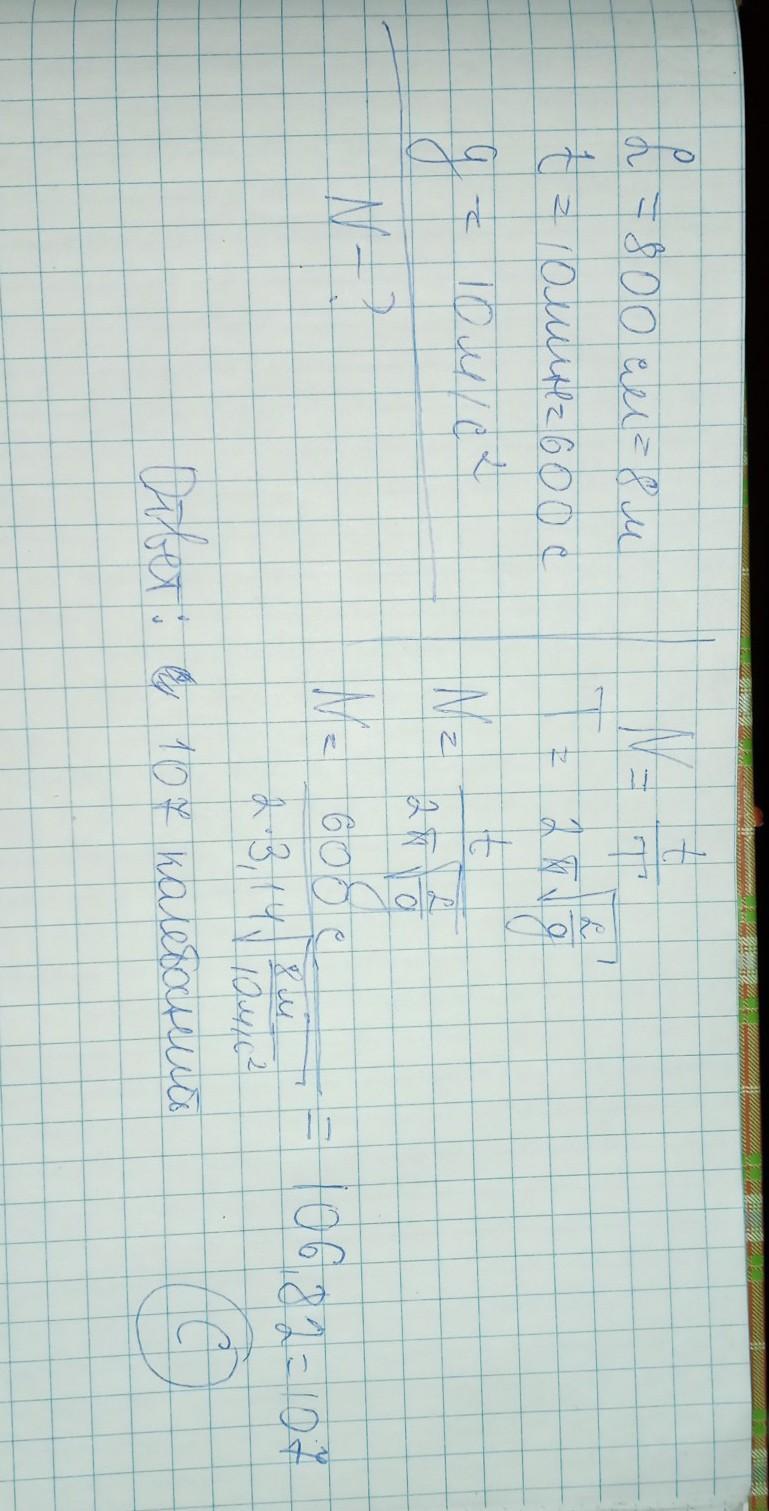 l = 800 см = 8 м
t = 10 мин = 600 с
g = 10 м/с²
N – ?
N = t/T
T = 2π√(l/g)
N = t/(2π√(l/g))
N = 600 с/(2·3,14√(8м/10м/с²)) = 106,82 = 107
Ответ: 107 колебаний
C